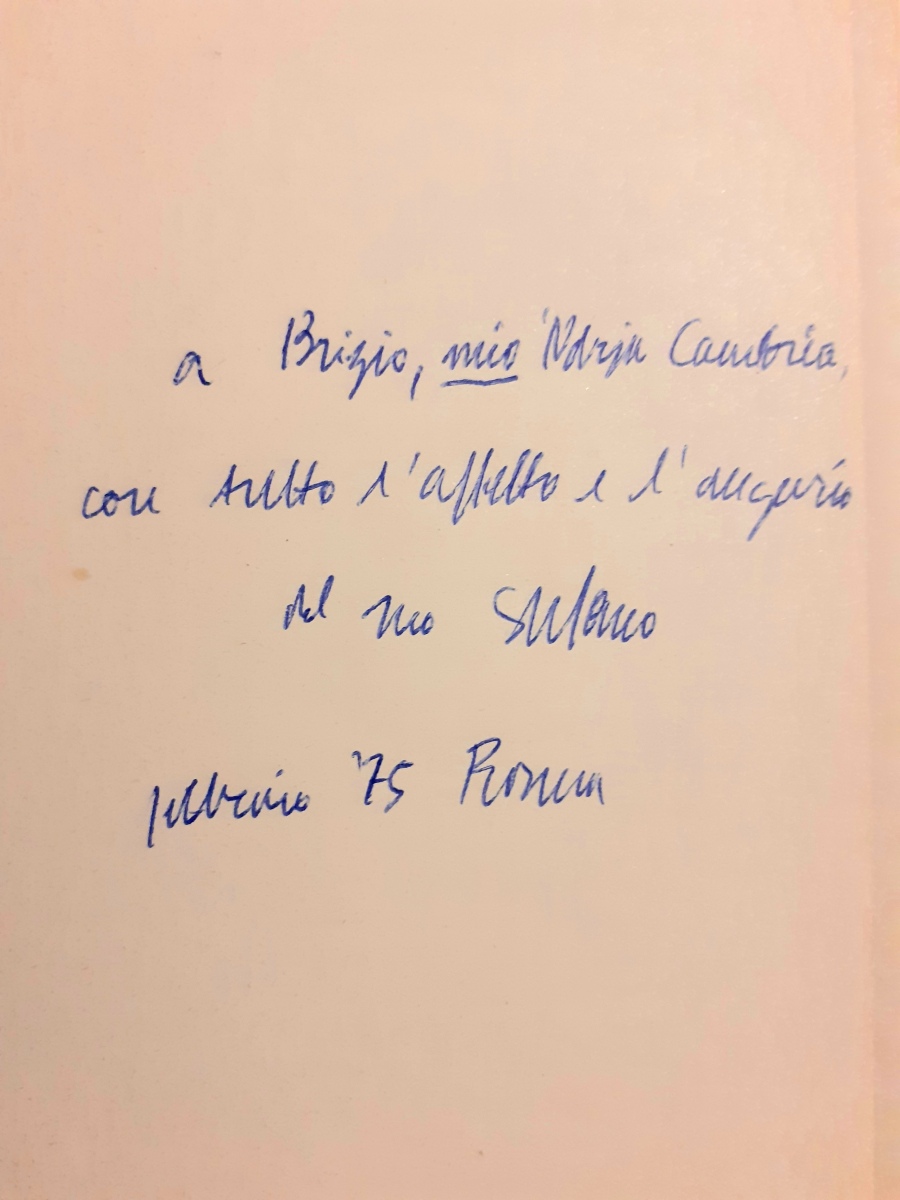 a Brizio, mio 'Ndrja Cambría,
con tutto l'affetto e l'augurio
del suo Stefano
febbraio '75 Roma